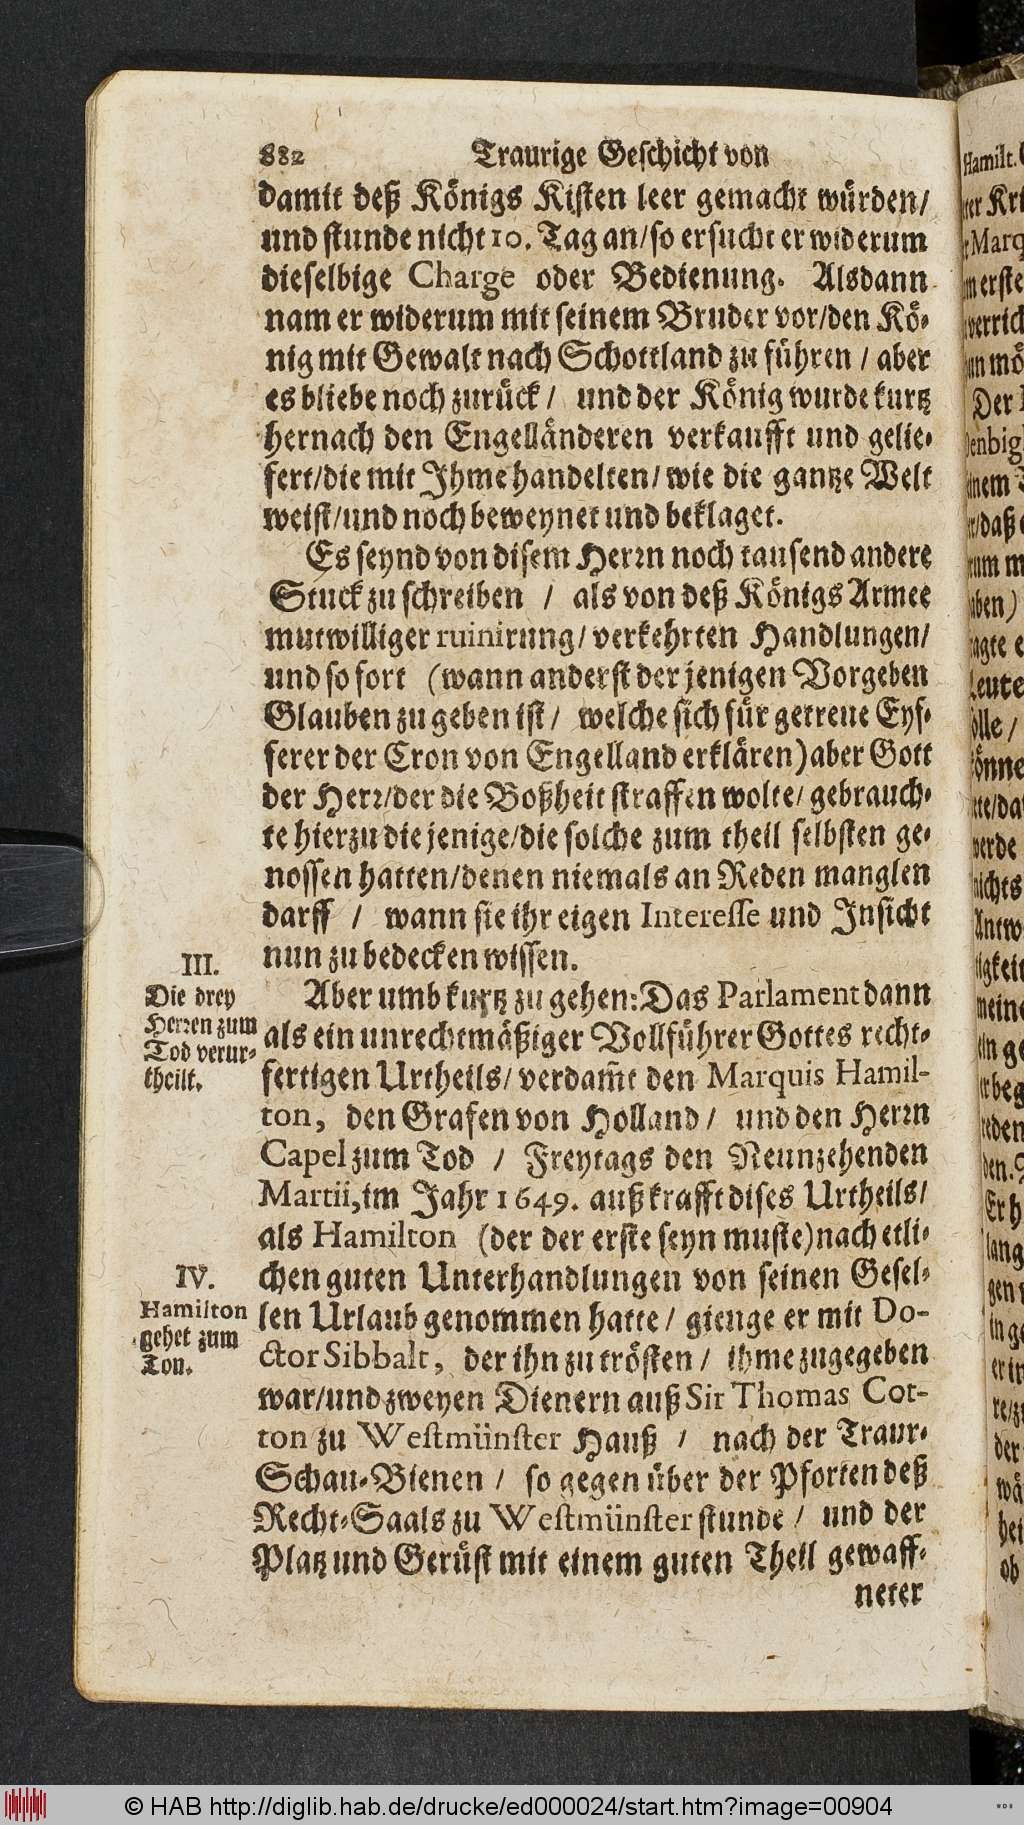 882 Traurige Geschicht von
damit deß Königs Kisten leer gemacht würden/
und stunde nicht 10. Tag an/so ersucht er widerum
dieselbige Charge oder Bedienung. Alsdann
nam er widerum mit seinem Bruder vor/den Kö-
nig mit Gewalt nach Schottland zu führen / aber
es bliebe noch zurück / und der König wurde kurtz
hernach den Engelländeren verkaufft und gelie-
fert/die mit Ihme handelten/ wie die gantze Welt
weist/und noch beweynet und beklaget.
Es seynd von disem Herrn noch tausend andere
Stuck zu schreiben / als von deß Königs Armee
mutwilliger ruinirung/ verkehrten Handlungen/
und so fort (wann anderst der jenigen Vorgeben
Glauben zu geben ist/ welche sich für getreue Eyf-
ferer der Cron von Engelland erklären) aber Gott
der Herr/der die Boßheit straffen wolte/ gebrauch-
te hierzu die jenige/die solche zum theil selbsten ge-
nossen hatten/denen niemals an Reden manglen
darff / wann sie ihr eigen Interesse und Insicht
nun zu bedecken wissen.
III.
Die drey
Herren zum
Tod verur-
theilt.
Aber umb kurtz zu gehen: Das Parlament dann
als ein unrechtmäßiger Vollführer Gottes recht-
fertigen Urtheils/ verdam̃t den Marquis Hamil-
ton, den Grafen von Holland/ und den Herrn
Capel zum Tod / Freytags den Neunzehenden
Martii, im Jahr 1649. auß krafft dises Urtheils/
als Hamilton (der der erste seyn muste) nach etli-
IV.
Hamilton
gehet zum
Ton.
chen guten Unterhandlungen von seinen Gesel-
len Urlaub genommen hatte/ gienge er mit Do-
ctor Sibbalt, der ihn zu trösten/ ihme zugegeben
war/und zweyen Dienern auß Sir Thomas Cot-
ton zu Westmünster Hauß / nach der Traur-
Schau-Bienen / so gegen über der Pforten deß
Recht-Saals zu Westmünster stunde / und der
Platz und Gerüst mit einem guten Theil gewaff-
neter
© HAB http://diglib.hab.de/drucke/ed000024/start.htm?image=00904